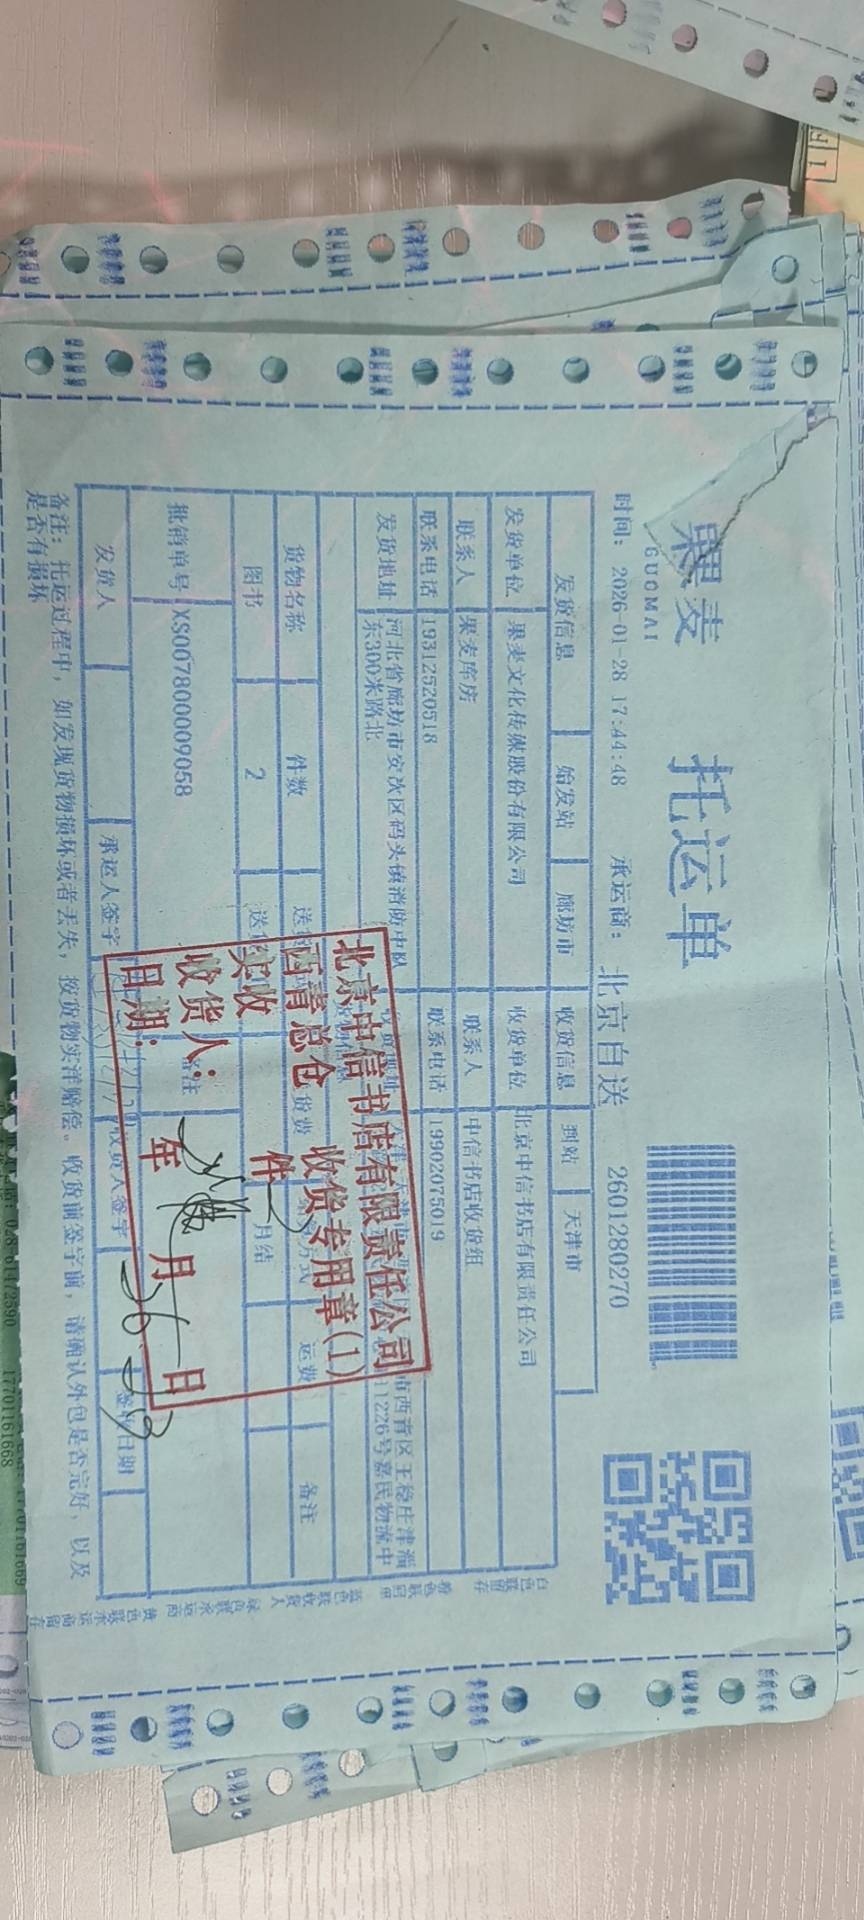 果麦
GUOMAI
托运单
时间: 2026-01-28 17:44:48
承运商: 北京自送
2601280270
发货信息 始发站 廊坊市 收货信息 到站 天津市
发货单位 果麦文化传媒股份有限公司 收货单位 北京中信书店有限责任公司
联系人 果麦库房 联系人 中信书店收货组
联系电话 19312520518 联系电话 19902075019
发货地址 河北省廊坊市安次区码头镇消防中队
东300米路北
市西青区王稳庄津淄
1226号嘉民物流中
货物名称 件数 货费 运费 备注
图书 2 月结
批销单号 XS007800009058 备注
发货人 承运人签字 收货人签字 签收日期
备注: 托运过程中, 如发现货物损坏或者丢失, 按货物实洋赔偿。收货前签字前, 请确认外包是否完好, 以及
是否有损坏
北京中信书店有限责任公司
西青总仓 收货专用章(1)
实收 2 件
收货人:
日期: 年 月 日
白色联留存
粉色联回单
蓝色联收货人
绿色联承运商
黄色联承运商留存
17701161668